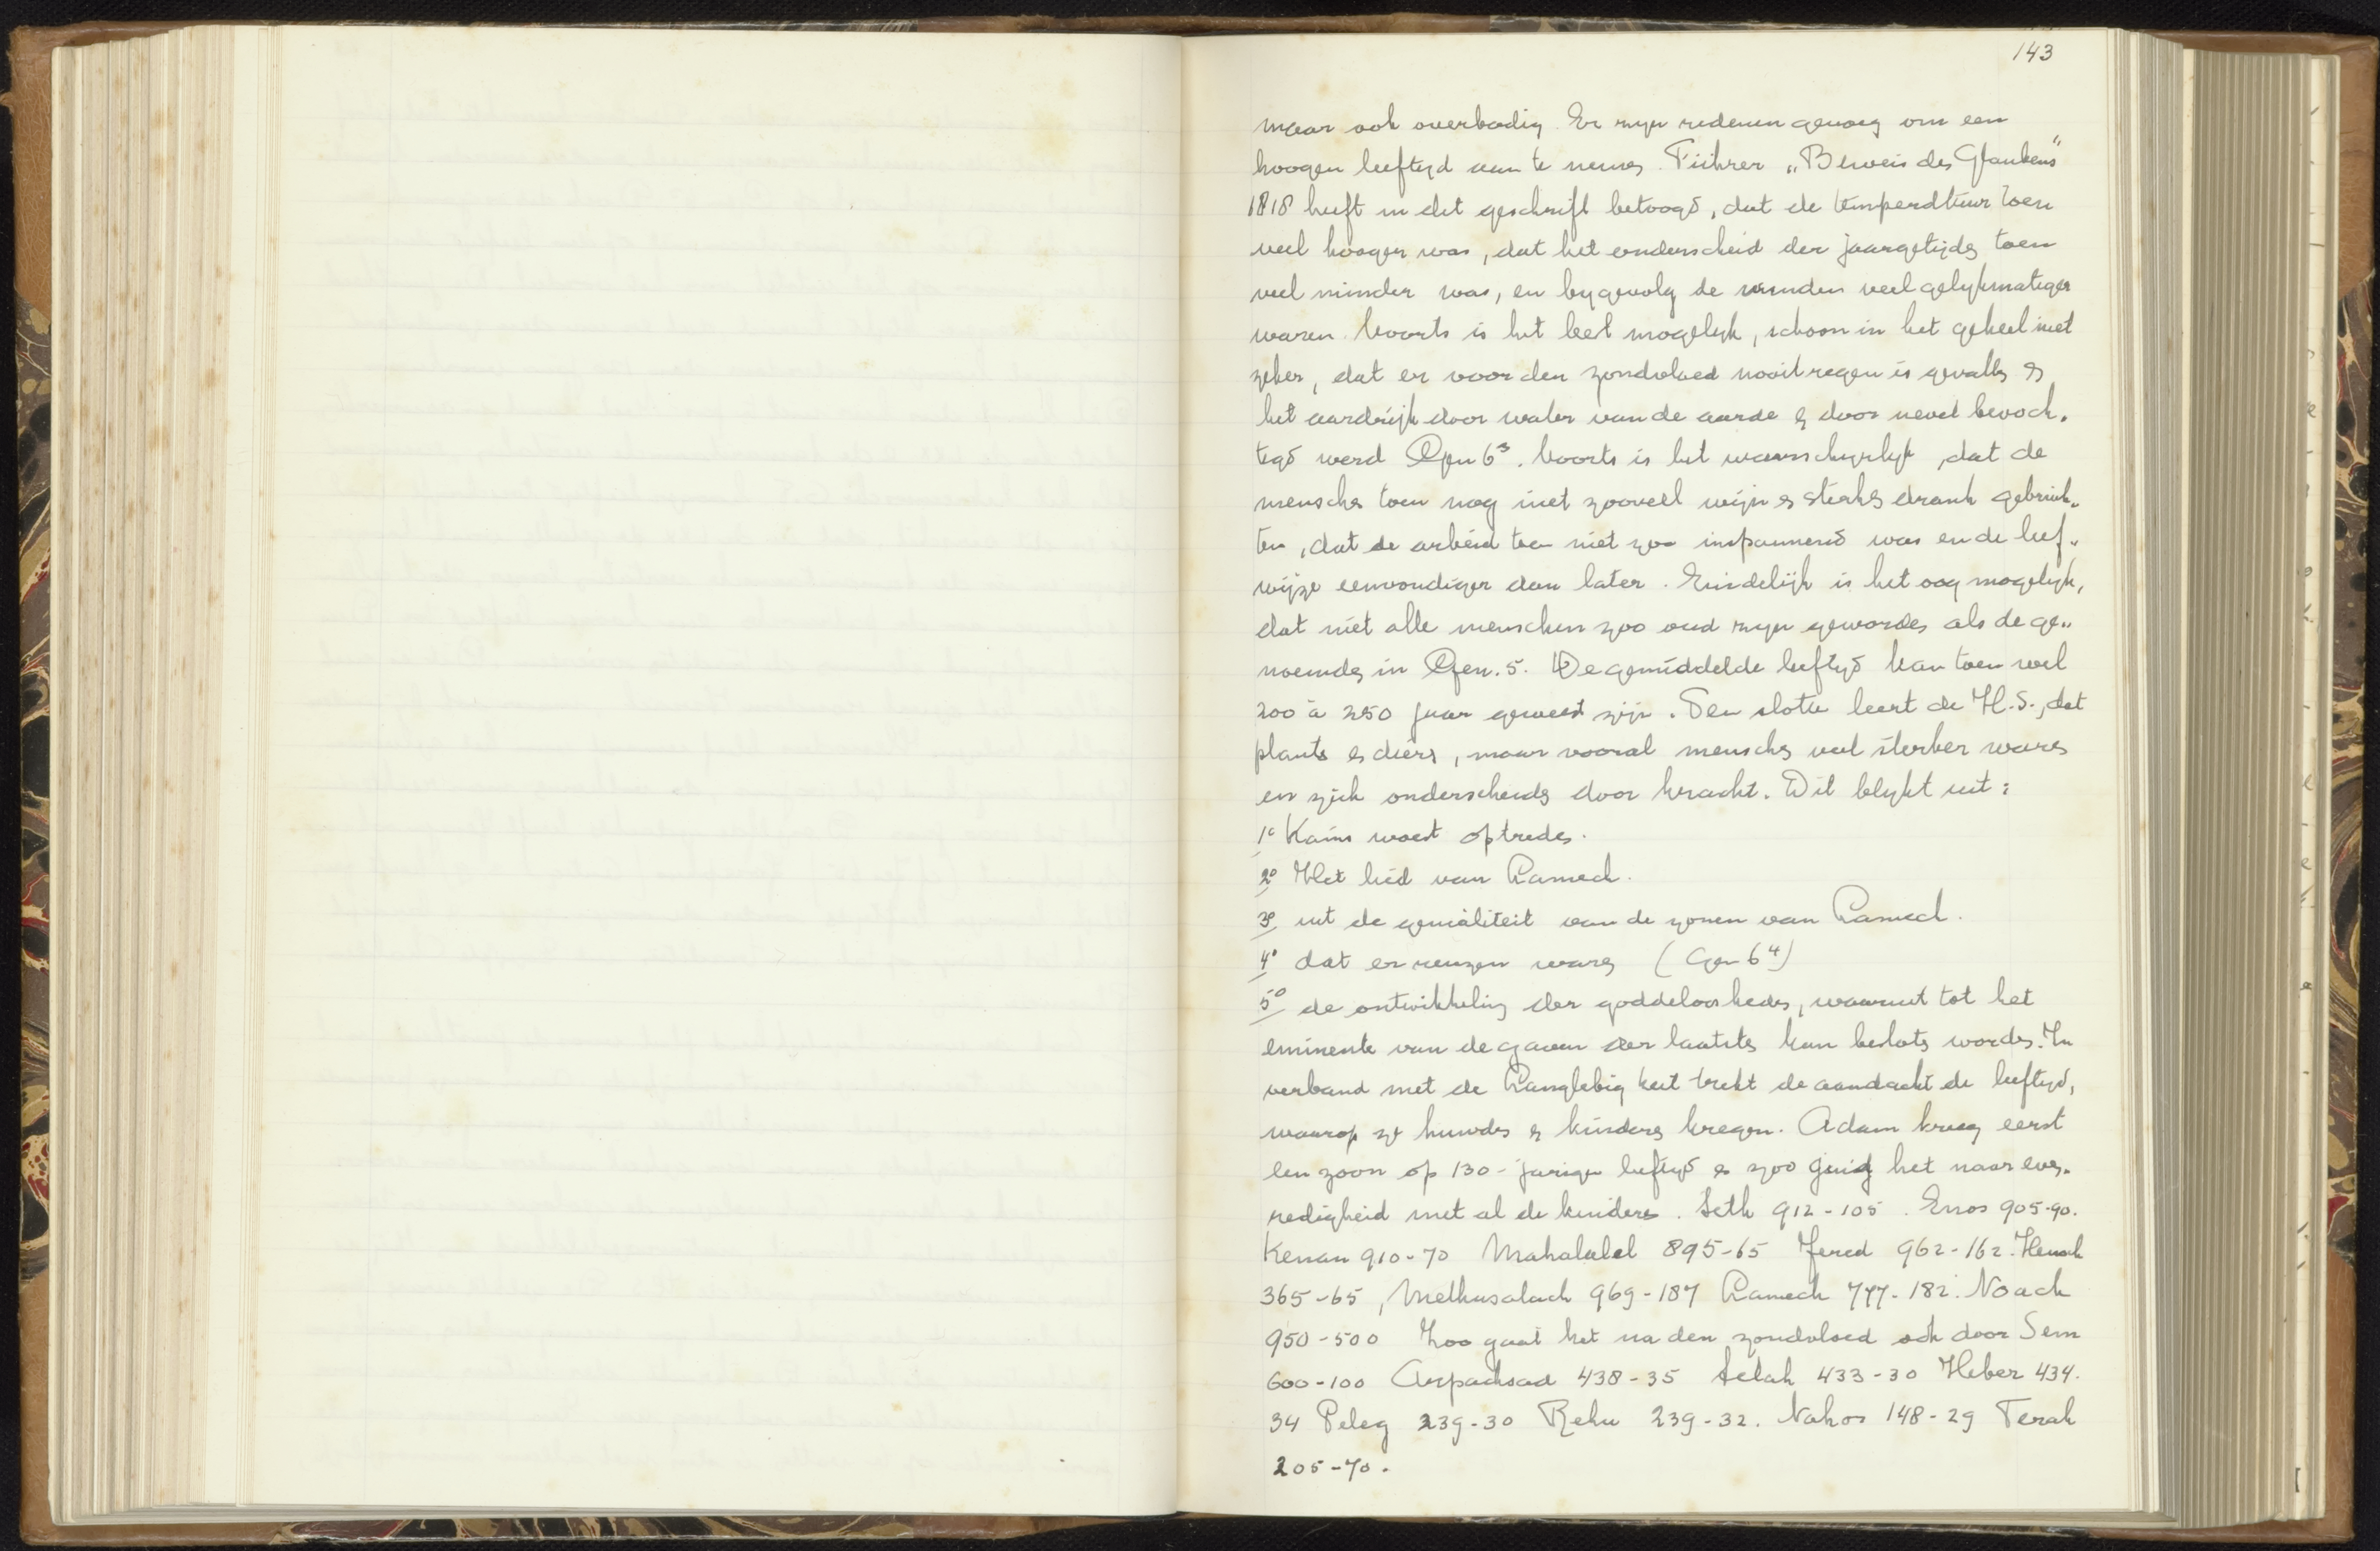 143
maar ook overbodig. Er zijn redenen genoeg om een
hoogen leeftijd aan te nemen. Führer „Beweis des Glaubens"
1818 heeft in dit geschrift betoogd, dat de temperdtuur toen
veel hooger was, dat het onderscheid der jaargetijden toen
veel minder was, en bygevolg de winden veel gelykmatiger
waren. Voorts is het heel mogelyk, schoon in het geheel niet
zeker, dat er voor den zondvloed nooit regen is gevallen en
het aardrijk door water van de aarde en door nevel bevoch„
tigd werd Gen 6³. Voorts is het waarschynlyk, dat de
menschen toen nog niet zooveel wijn en sterken drank gebruik„
ten, dat de arbeid toen niet zoo inspannend was en de leef„
wijze eenvoudiger dan later. Eindelijk is het oog mogelyk,
dat niet alle menschen zoo oud zyn geworden als de ge„
noemden in Gen. 5. De gemiddelde leeftyd kan toen wel
200 à 250 jaar geweest zijn. Ten slotte leert de H.S., dat
planten en dieren, maar vooral menschen veel sterker waren
en zich onderscheiden door kracht. Dit blykt uit:
1º Kains woest optreden.
2º Het lied van Lamech.
3º uit de genialiteit van de zonen van Lamech.
4º dat er reuzen waren (Gen 6⁴)
5º de ontwikkeling der goddeloosheden, waaruit tot het
eminente van de gaven der laatsten kan besloten worden. In
verband met de Langlebigkeit trekt de aandacht de leeftyd,
waarop ze huwden en kinderen kregen. Adam kreeg eerst
een zoon op 130-jarigen leeftyd en zoo ging het naar even„
redigheid met al de kinderen. Seth 912-105. Enos 905-90.
Kenan 910-70 Mahalalel 895-65 Jered 962-162. Henoch
365-65, Methusalach 969-187 Lamech 777-182. Noach
950-500 Zoo gaat het na den zondvloed ook door Sem
600-100 Arpachsad 438-35 Selah 433-30 Heber 434.
34 Peleg 239-30 Rehu 239-32. Nahor 148-29 Terah
205-70.